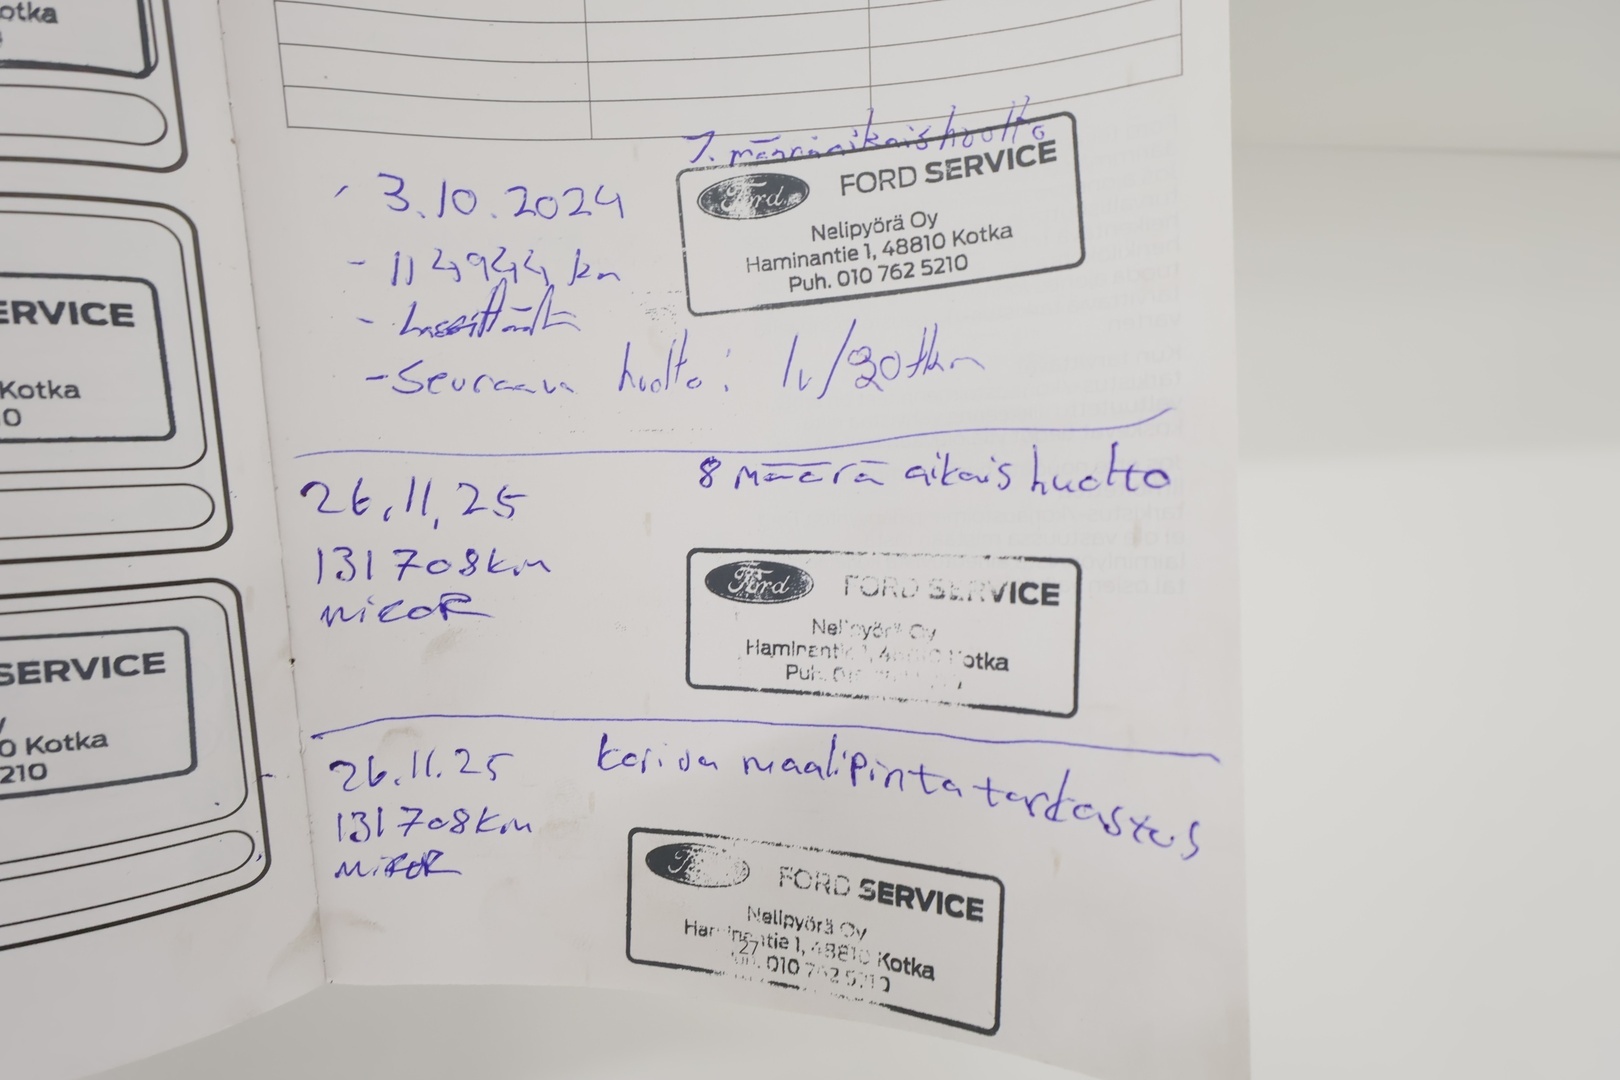 otka
ERVICE
Kotka
0
SERVICE
y
0 Kotka
210
7. määräaikaishuolto
3.10.2024
Ford
FORD SERVICE
Nelipyörä Oy
Haminantie 1, 48810 Kotka
Puh. 010 762 5210
- km
- Seuraava huolto: 1v/20tkm
26.11.25
8 määräaikaishuolto
131708km
Ford
FORD SERVICE
Nelipyörä Oy
Haminantie 1, 48810 Kotka
Puh.
26.11.25
Korin maalipinta tarkastus
131708km
FORD SERVICE
Nelipyörä Oy
Haminantie 1, 48810 Kotka
27
010 762 5210